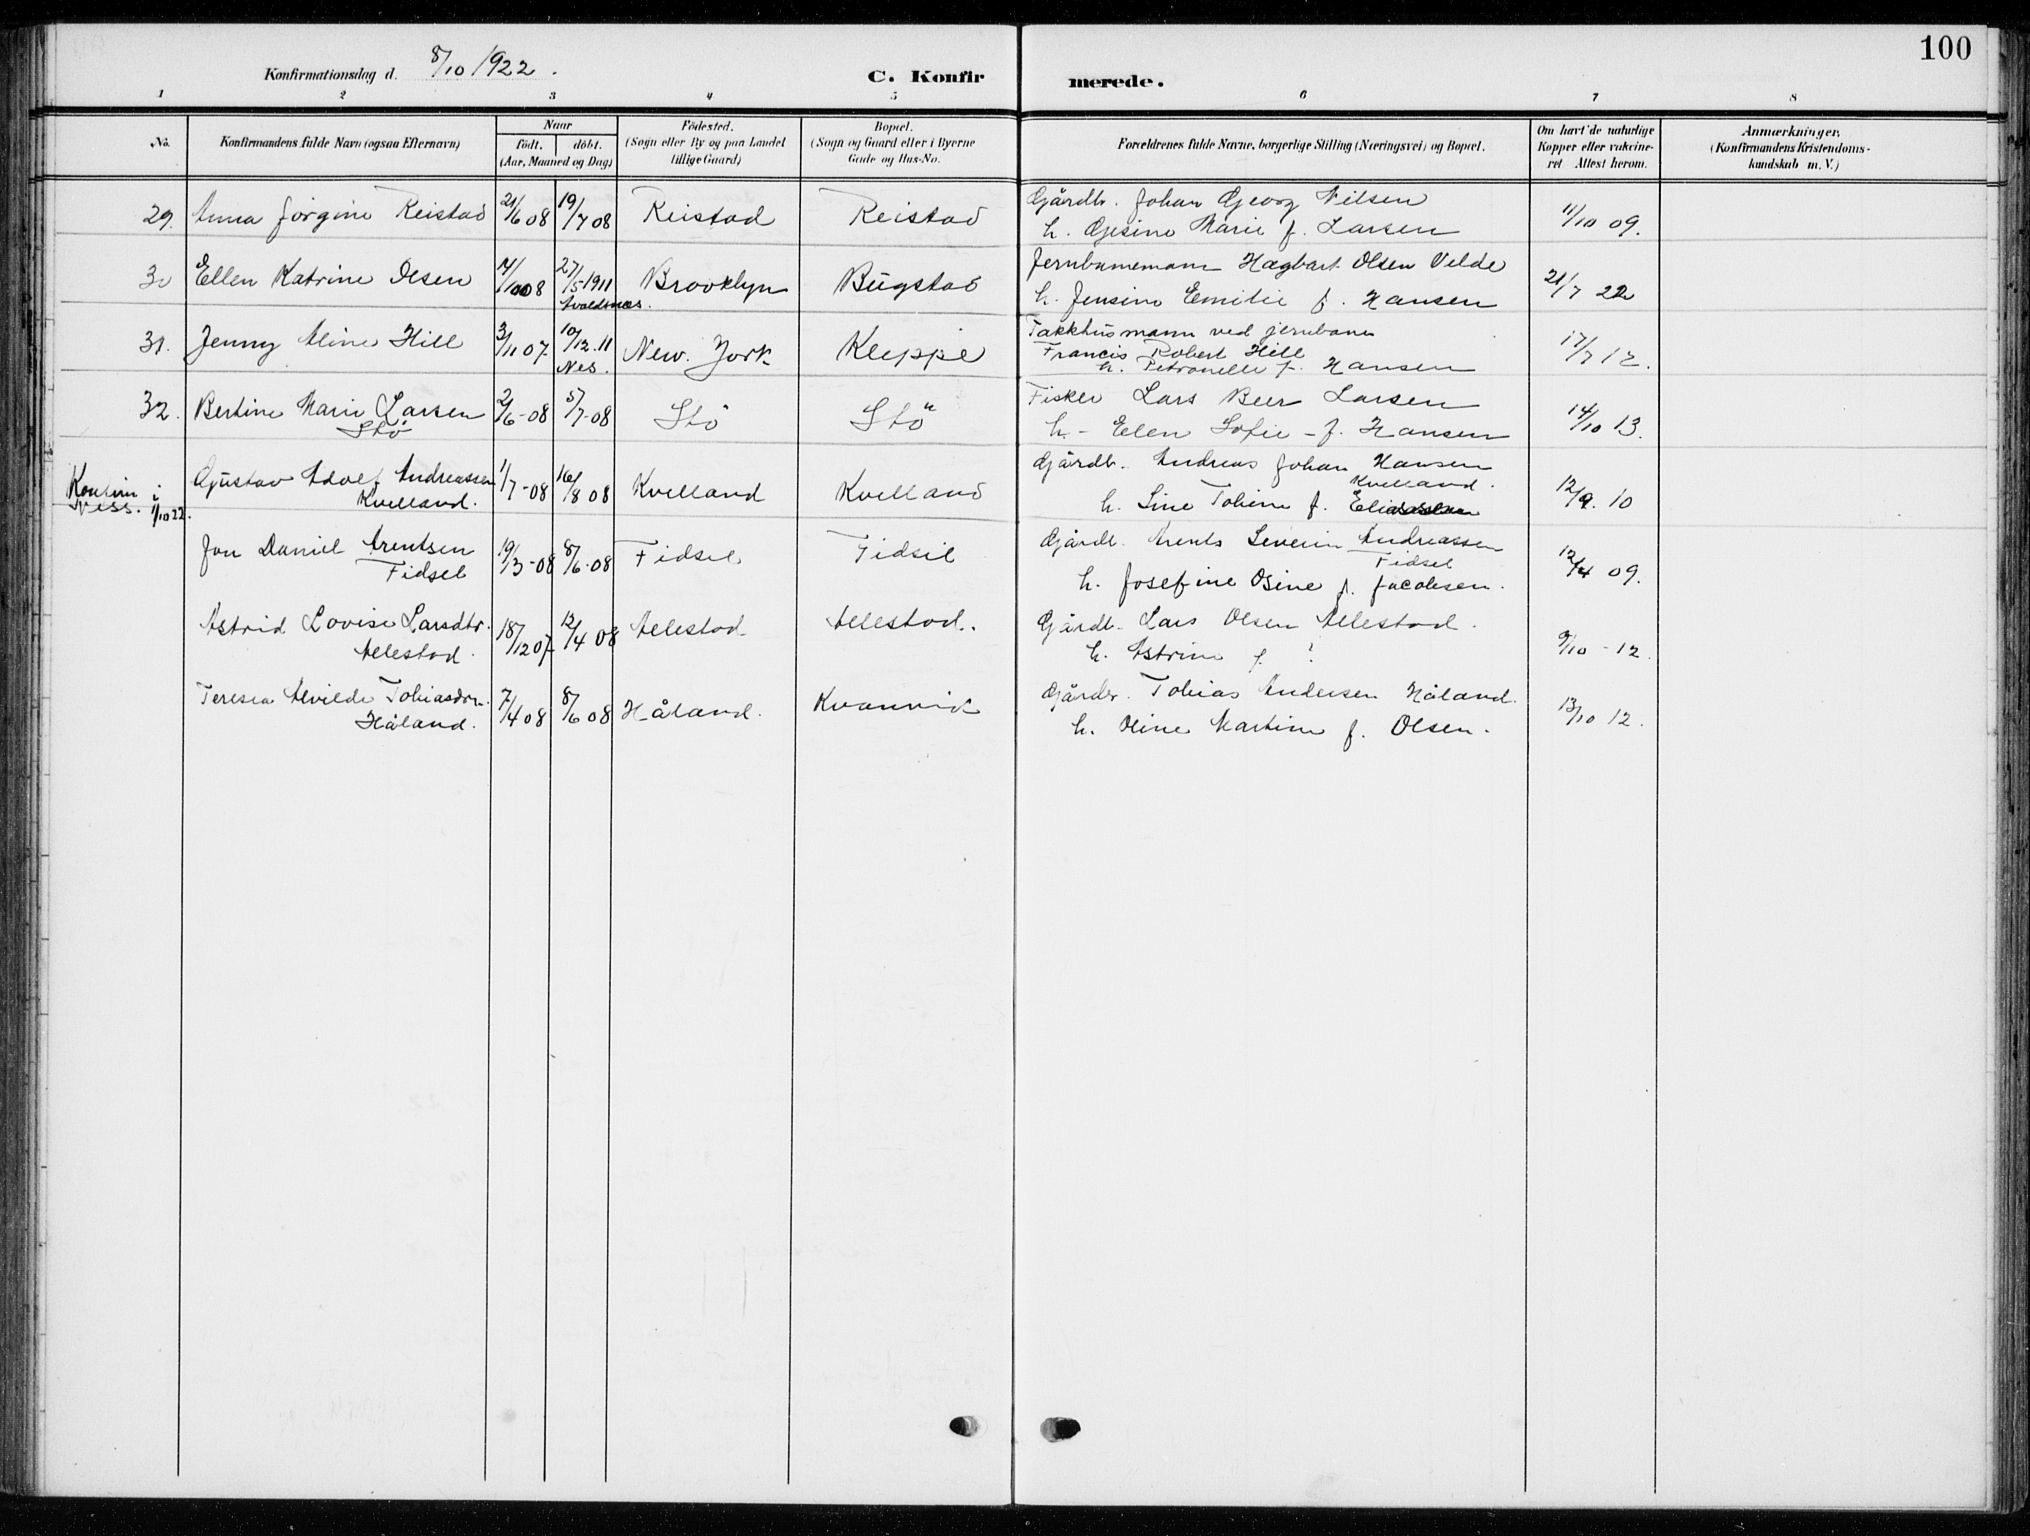 100
Konfirmationsdag d. 8/10 1922.
C. Konfirmerede.
1 2 3 4 5 6 7 8
No.
Konfirmandens fulde Navn (ogsaa Efternavn)
Naar
födt. döbt.
(Aar, Maaned og Dag)
Födested.
(Sogn eller By og paa Landet
tillige Gaard)
Bopæl.
(Sogn og Gaard eller i Byerne
Gade og Hus-No.
Forældrenes fulde Navne, borgerlige Stilling (Næringsvei) og Bopæl.
Om havt de naturlige
Kopper eller vakcine-
ret. Attest herom.
Anmærkninger.
(Konfirmandens Kristendoms-
kundskab m. V.)
29. Anna Jørgine Reistad 21/6 08 19/7 08 Reistad Reistad Gårdb. Johan Georg Nilsen
h. Gesine Marie f. Larsen 11/10 09.
30 Ellen Katrine Olsen 08 27/5-1911 Brooklyn Bugstad Jernbanemann Hagbart Olsen Velde
Avaldsnes. h. Jensine Emilie f. Hansen 21/7 22
31. Jenny Aline Hill 3/11 07. 10/12.11 New. York Kleppe Pakkhusmann ved jernbane
Nes. Francis Robert Hill
h. Petronelle f. Hansen 17/7 12.
32. Bertine Marie Larsen 2/6-08 5/7-08 Stö Stö Fisker Lars Beer Larsen
Stö h- Elen Sofie - f. Hansen 14/10 13.
Konfirm i
Ness. 1/10 22.
Gustav Adolf Andreassen 1/7-08 16/8 08 Kvelland Kvelland Gårdb. Andreas Johan Hansen
Kvelland. Kvelland.
h. Line Tobine f. 12/9. 10
Jon Daniel Arentsen 19/3-08 8/6-08 Fidsel Fidsel Gårdb. Arents Severin Andreassen
Fidsel Fidsel
h. Josefine Osine f. Jacobsen. 12/4 09.
Astrid Lovise Larsdtr. 18/12 07 12/4 08 Allestad Allestad. Gårdb. Lars Olsen Allestad.
Allestad. h. Astrine f. ? 9/10-12.
Teresea Alvilde Tobiasdtr. 7/4 08 8/6 08 Håland. Kvanvik Gårdbr. Tobias Andersen Håland.
Håland. h. Oline Martine f. Olsen. 13/10 12.